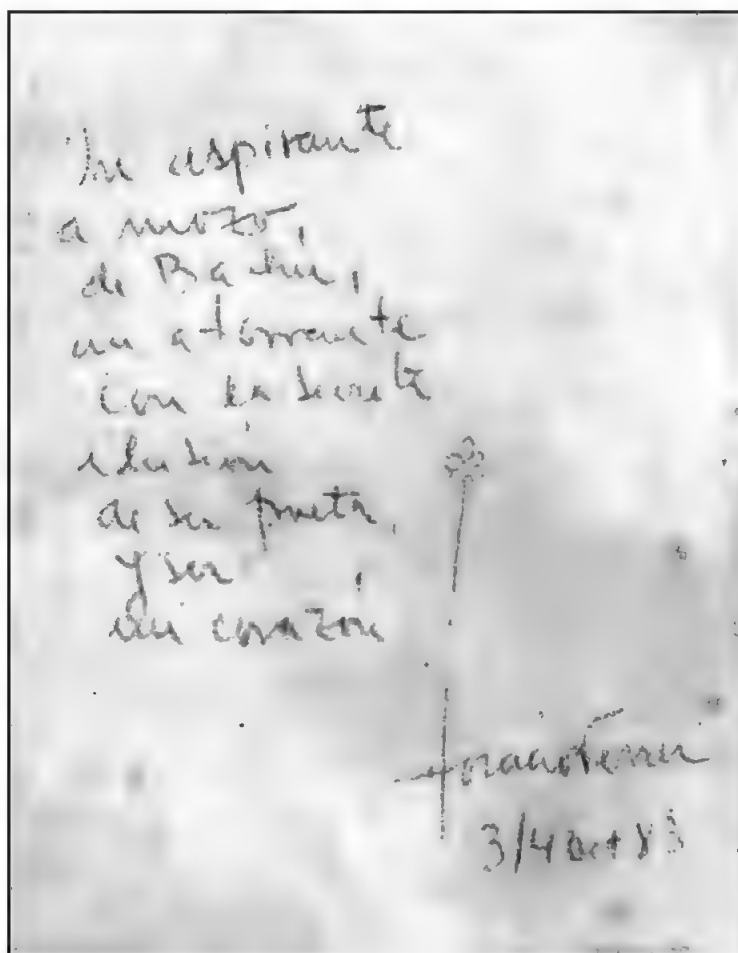 Un aspirante
a mozo,
de Bahía,
un atorrante
con la secreta
ilusión
de ser poeta,
y ser
un corazón
3/4 Oct 83